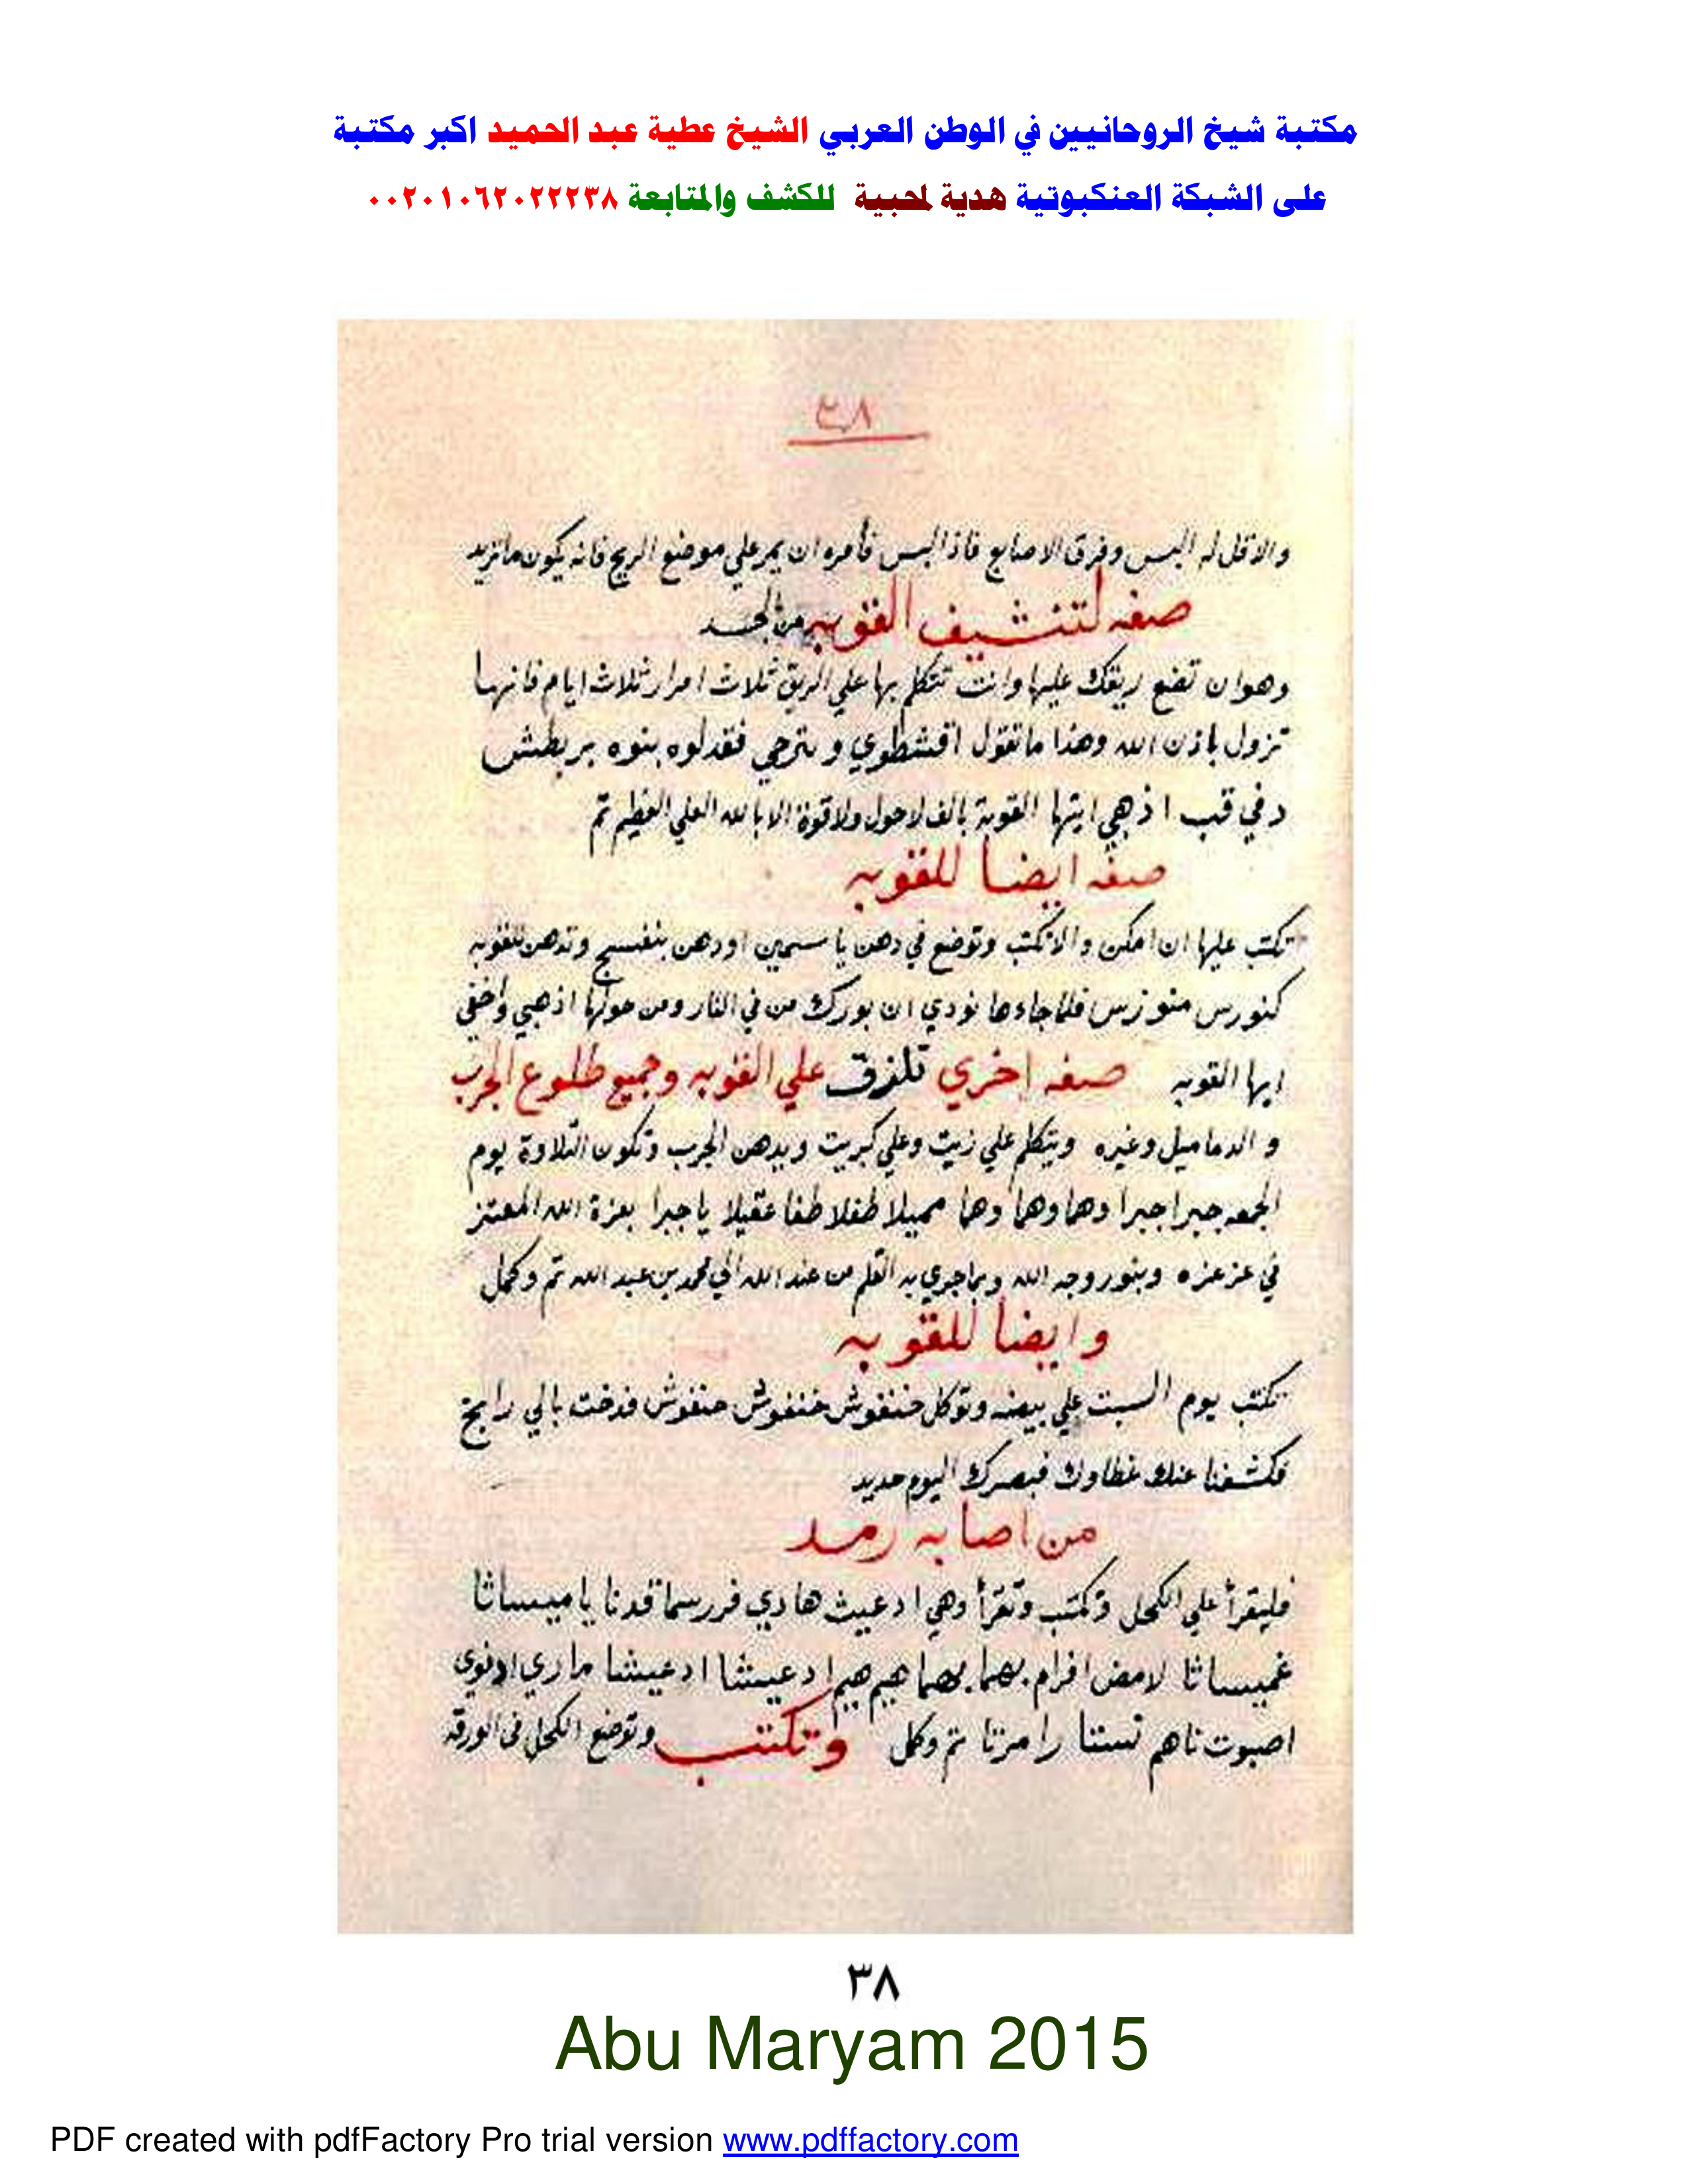 مكتبة شيخ الروحانيين في الوطن العربي الشيخ عطية عبد الحميد اكبر مكتبة
على الشبكة العنكبوتية هدية لمحبية للكشف والمتابعة ٠٠٢٠١٠٦٢٠٢٢٢٣٨
٣٨
والا قل له البس وفرق الاصابع فاذا البس فأمره ان يمر علي موضع الريح فانه يكون ما تريد
صفه لتنشيف القوبه من الجسد
وهو ان تضع ريقك عليها وانت تتكلم بها علي الريق ثلاث امرار ثلاث ايام فانها
تزول باذن الله وهذا ما تقول اقشطوي و فقدلوه بنوه بربطش
دفي قب اذهبي ايتها القوبة بالف لاحول ولا قوة الا بالله العلي العظيم تم
صفه ايضا للقوبه
تكتب عليها ان امكن والا تكتب وتوضع في دهن ياسمين او دهن بنفسج وتدهن للقوبه
كنورس منوزس فلما جاءها نودي ان بورك من في النار ومن حولها اذهبي واخفي
ايها القوبه صفه اخري تلزق علي القوبه وجميع طلوع الجرب
و الدماميل وغيره ويتكلم علي زيت وعلي كبريت ويدهن الجرب وتكون التلاوة يوم
الجمعه جبرا جبرا دهما وهما وهما مميلا طفلا طفا عقيلا يا جبرا بعزة الله المعتز
في عز عزه وبنور وجه الله وبما جري به القلم من عند الله الي محمد بن عبد الله تم وكمل
وايضا للقوبه
تكتب يوم السبت علي بيضه وتوكل خنفوش خنفوش خنفوش فدخت بالي رابخ
فكشفنا عنك غطاوك فبصرك اليوم حديد
من اصابه رمد
فليقرأ علي الكحل وتكتب وتقرأ وهي ادعيث هادي فررسما قدنا يا ميساثا
غميساثا لامض افرام بهما بهما هيم هيم ادعيشا ادعيشا ماري ادنوي
اصبوت ناهم تستنا رامزتا تم وكمل وتكتب وتوضع الكحل في الورقه
٣٨
Abu Maryam 2015
PDF created with pdfFactory Pro trial version www.pdffactory.com